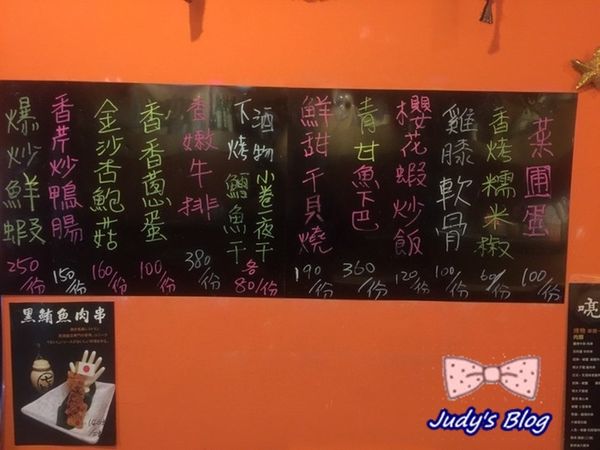 菜圃蛋 100/份
香烤糯米椒 60/份
雞膝軟骨 100/份
櫻花蝦炒飯 120/份
青甘魚下巴 360/份
鮮甜干貝燒 190/份
下酒物
小卷一夜干
烤鱈魚干
各80/份
香嫩牛排 380/份
香香蔥蛋 100/份
金沙杏鮑菇 160/份
香芹炒鴨腸 150/份
爆炒鮮蝦 250/份
黑鮪魚肉串
Judy's Blog